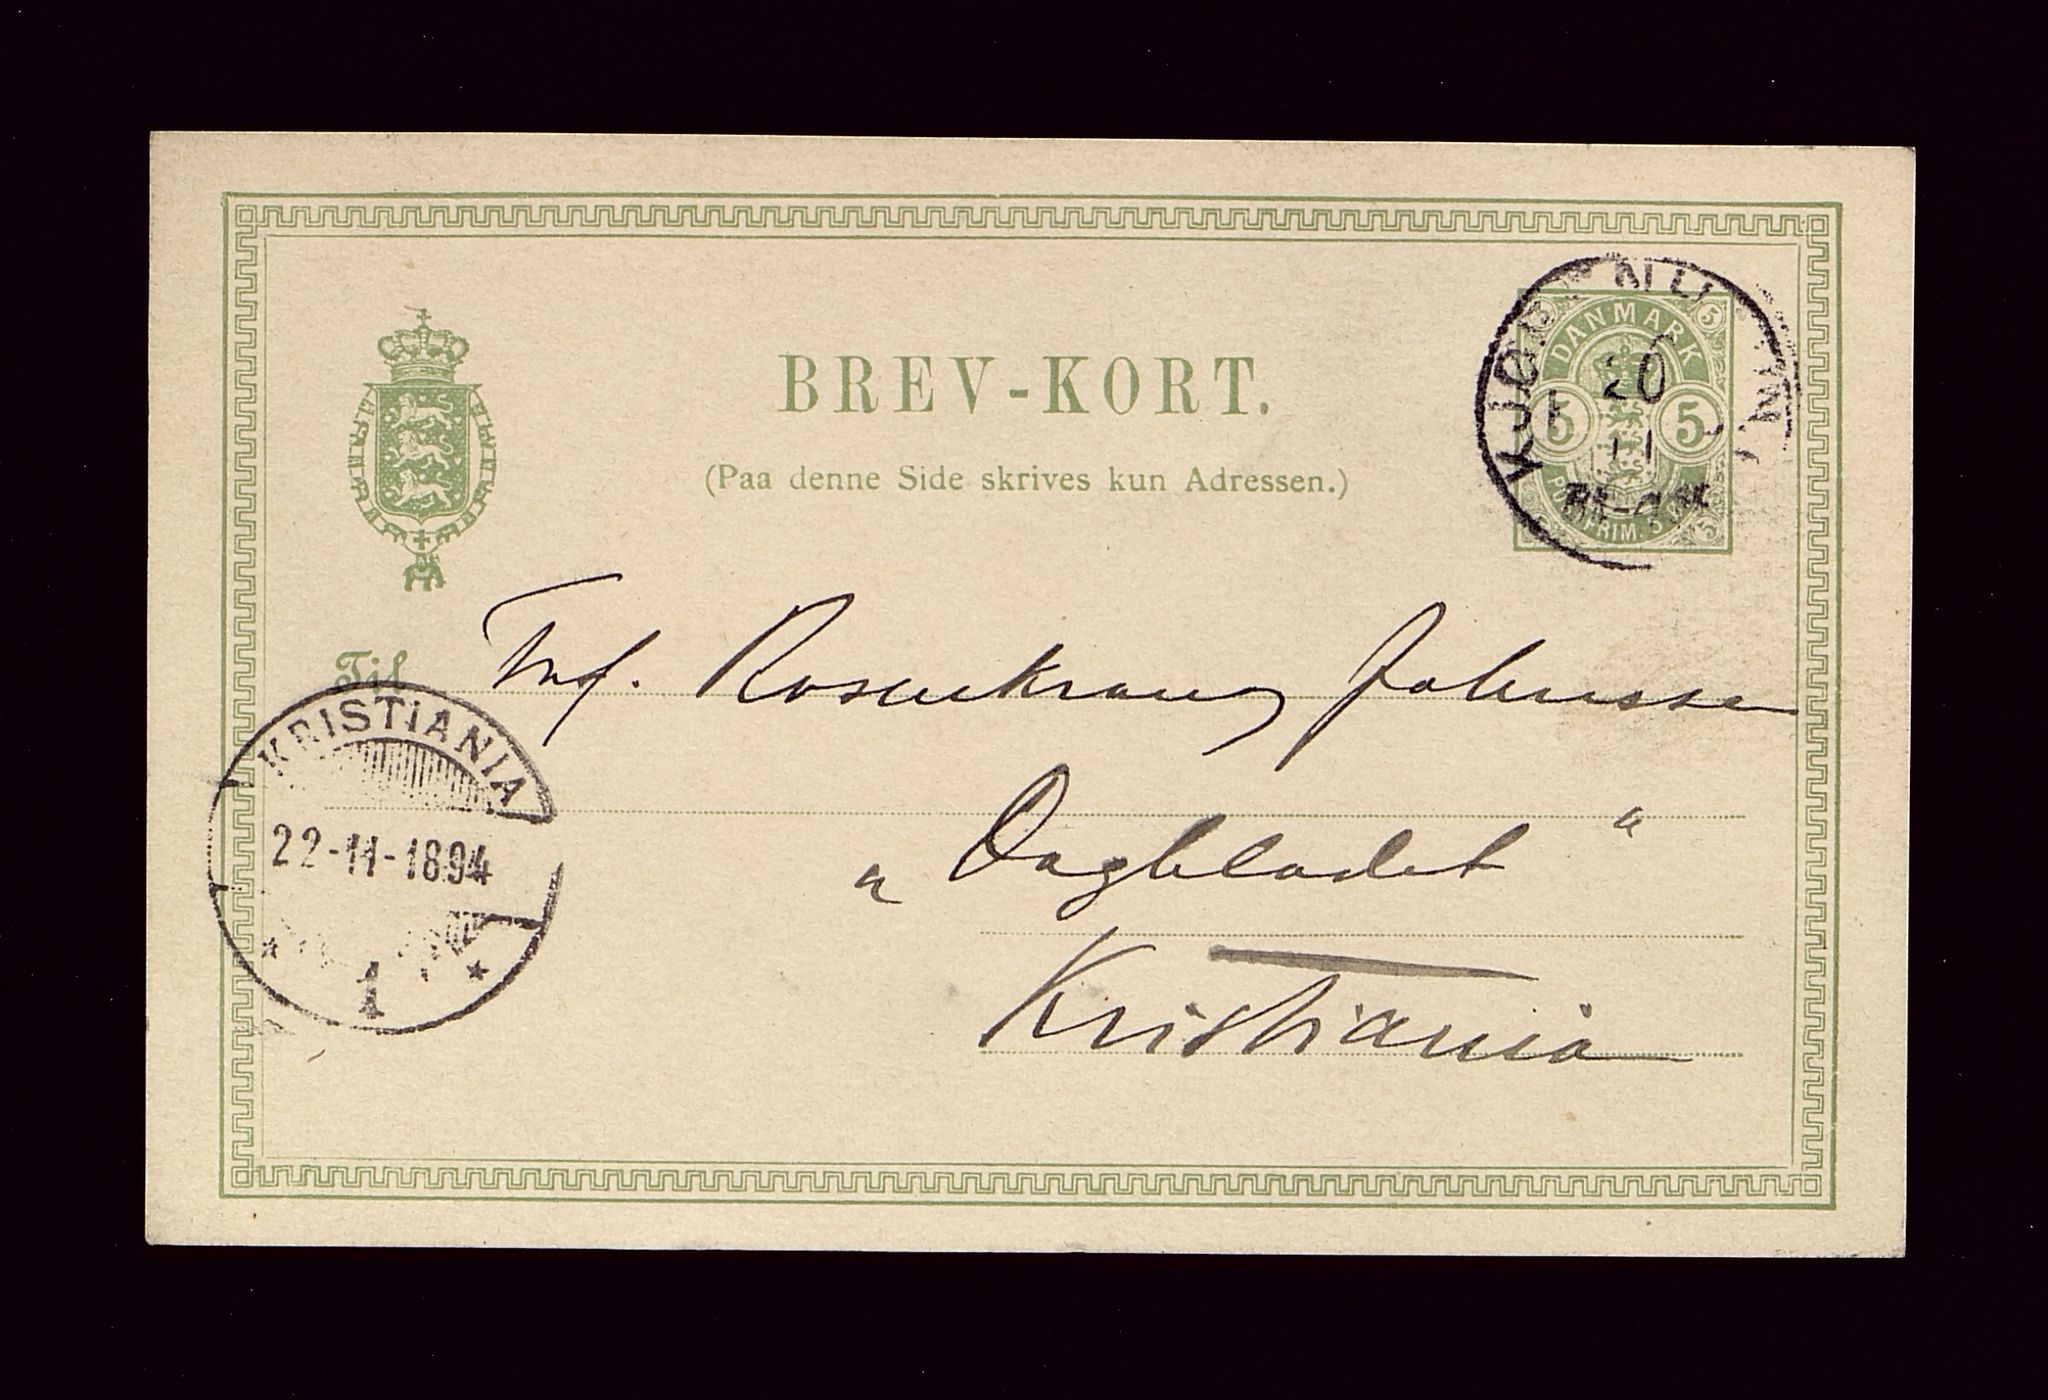 BREV-KORT.
(Paa denne Side skrives kun Adressen.)
DANMARK
5 5 5 5
5 5
POSTFRIM. 5 ØRE
20
11
Til
Rosenkranz Johnssen
„Dagbladet“
Kristiania
KRISTIANIA
22-11-1894
1